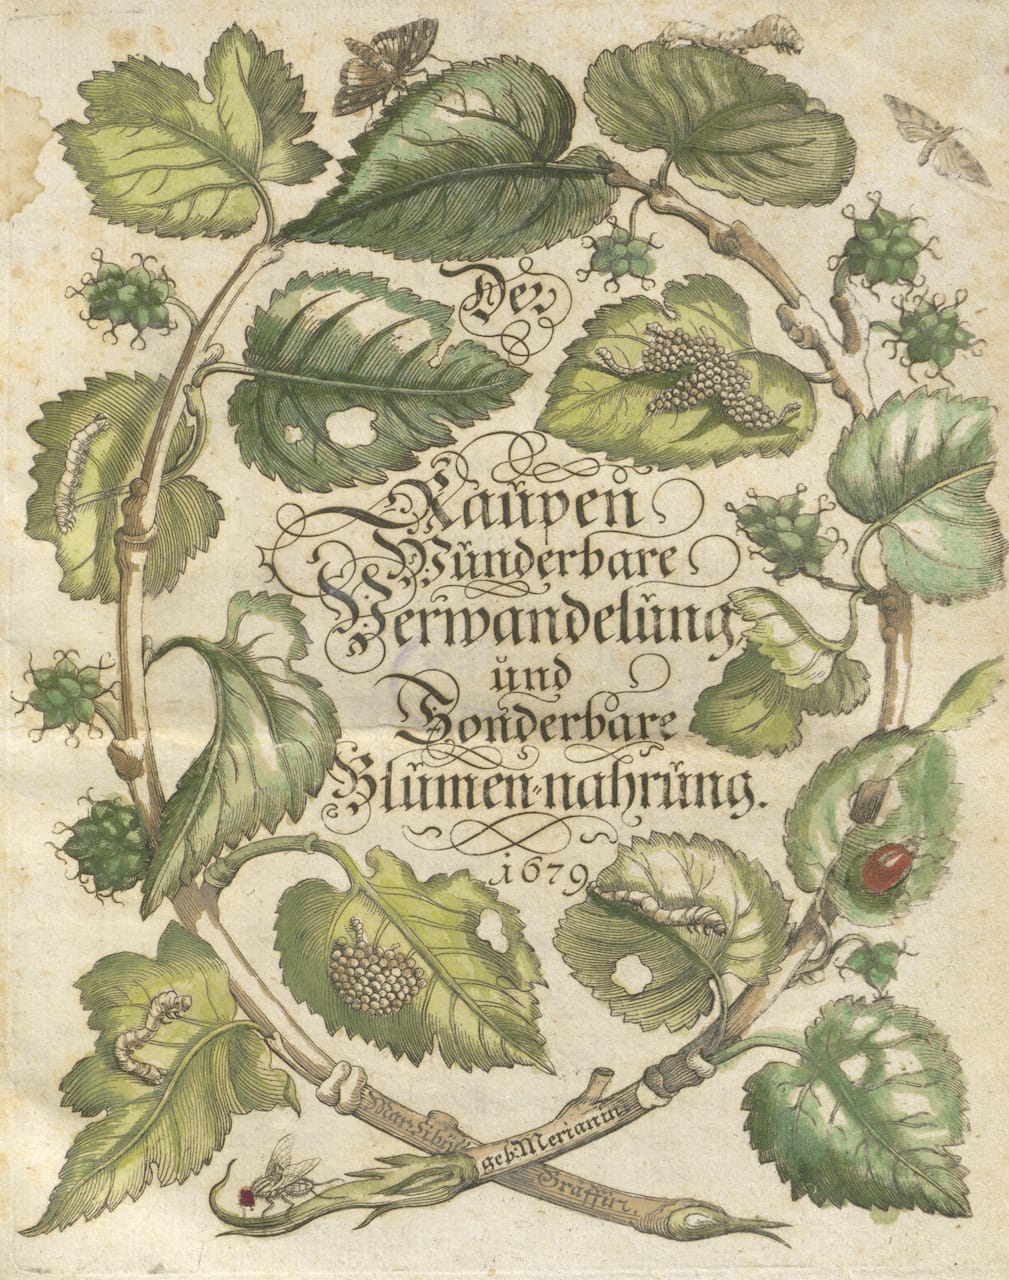 Der
Raupen
Wunderbare
Verwandelung,
und
Sonderbare
Blumen=nahrung.
1679
Mar. Sibÿl
Gräffin.
geb: Merianin.